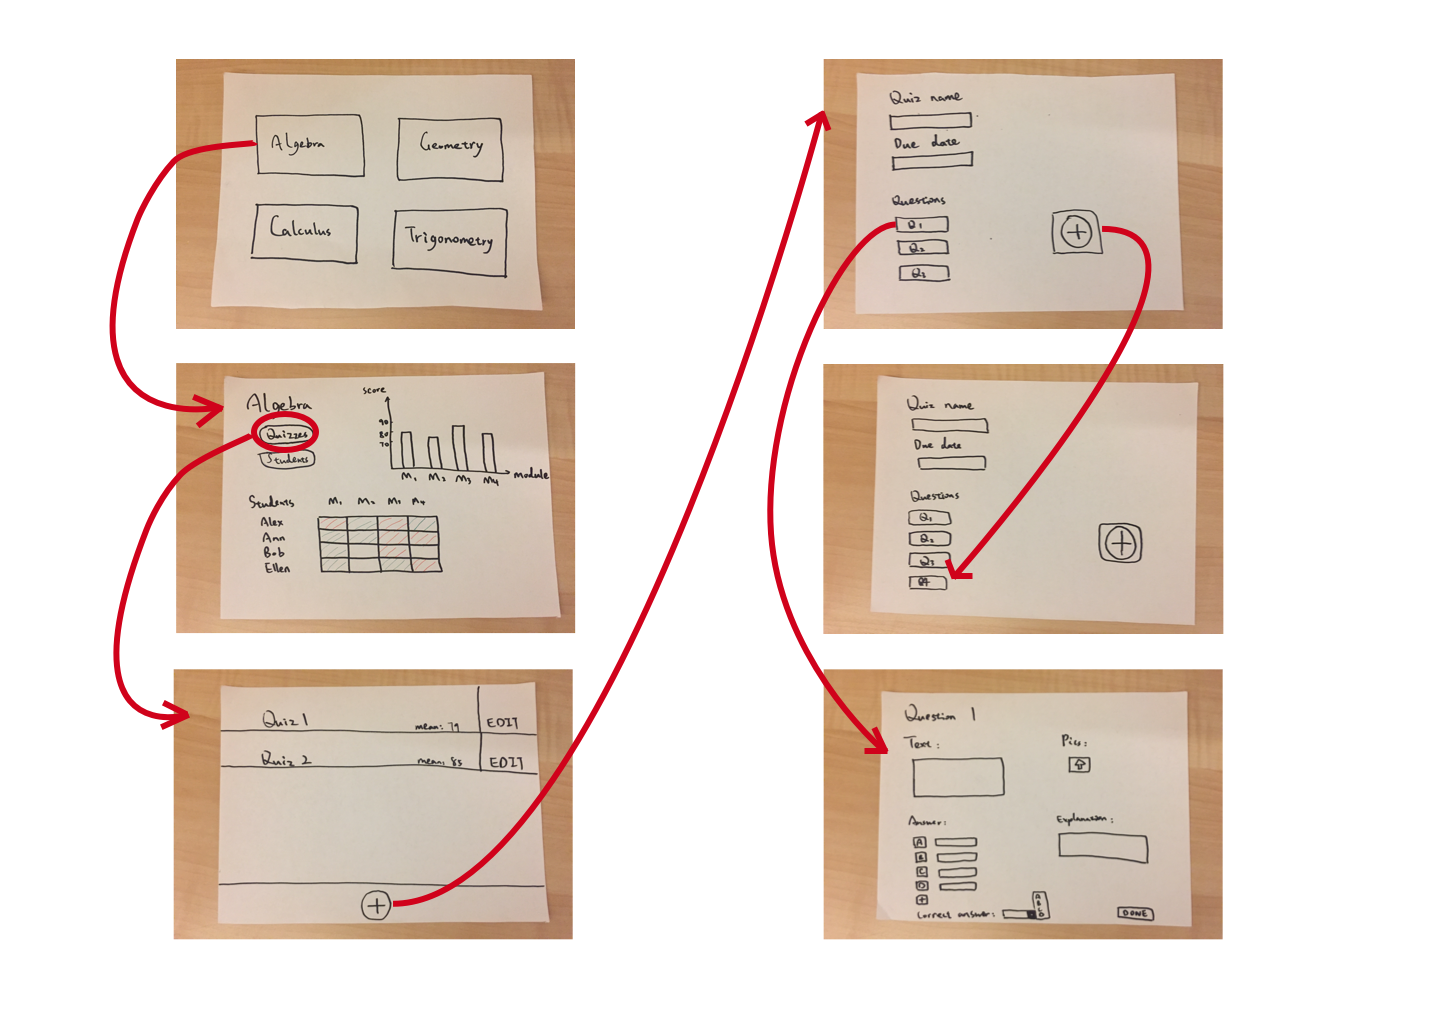 Algebra
Geometry
Calculus
Trigonometry
Algebra
Quizzes
Students
score
90
80
70
M1 M2 M3 M4 module
Students M1 M2 M3 M4
Alex
Ann
Bob
Ellen
Quiz 1 mean: 79 EDIT
Quiz 2 mean: 85 EDIT
+
Quiz name
Due date
Questions
Q1
Q2
Q3
+
Quiz name
Due date
Questions
Q1
Q2
Q3
Q4
+
Question 1
Text:
Pics:
Answer:
Explanation:
A
B
C
D
+
Correct answer:
A
B
C
D
DONE